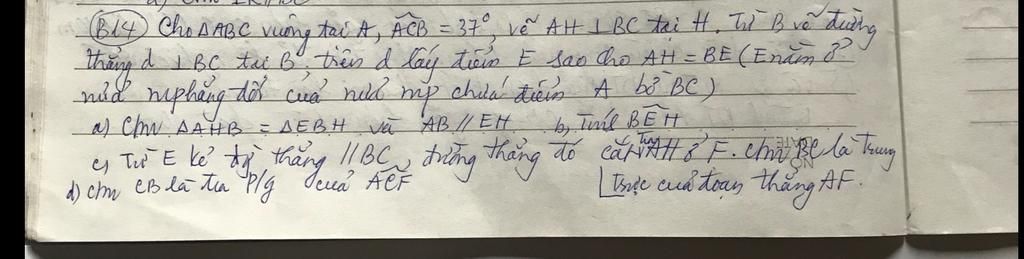 B14 Cho ΔABC vuông tại A, ACB = 37°, vẽ AH ⊥ BC tại H. Từ B vẽ đường
thẳng d ⊥ BC tại B. trên d lấy điểm E sao cho AH = BE (E nằm ở
nửa mphẳng đối của nửa mp chứa điểm A bờ BC)
a) Cm ΔAHB = ΔEBH và AB // EH b, Tính BEH
c, Từ E kẻ đg thẳng // BC, đường thẳng đó cắt tia AH ở F. cm BC là trung
trực của đoạn thẳng AF.
d) cm CB là tia p/g của ACF